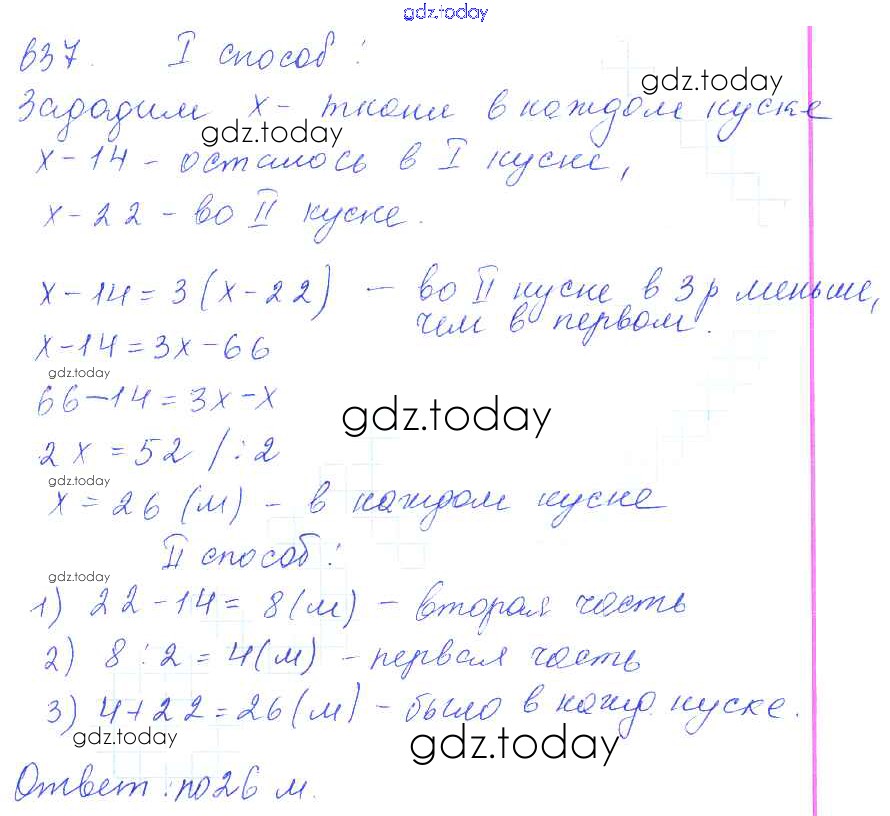 gdz.today
637. I способ:
gdz.today
Зададим x - ткани в каждом куске
gdz.today
x - 14 - осталось в I куске,
x - 22 - во II куске.
x - 14 = 3 (x - 22) - во II куске в 3 р меньше,
чем в первом.
x - 14 = 3x - 66
gdz.today
66 - 14 = 3x - x
gdz.today
2x = 52 / : 2
gdz.today
x = 26 (м) - в каждом куске
II способ:
gdz.today
1) 22 - 14 = 8 (м) - вторая часть
2) 8 : 2 = 4 (м) - первая часть
3) 4 + 22 = 26 (м) - было в кажд. куске.
gdz.today
gdz.today
Ответ: по 26 м.